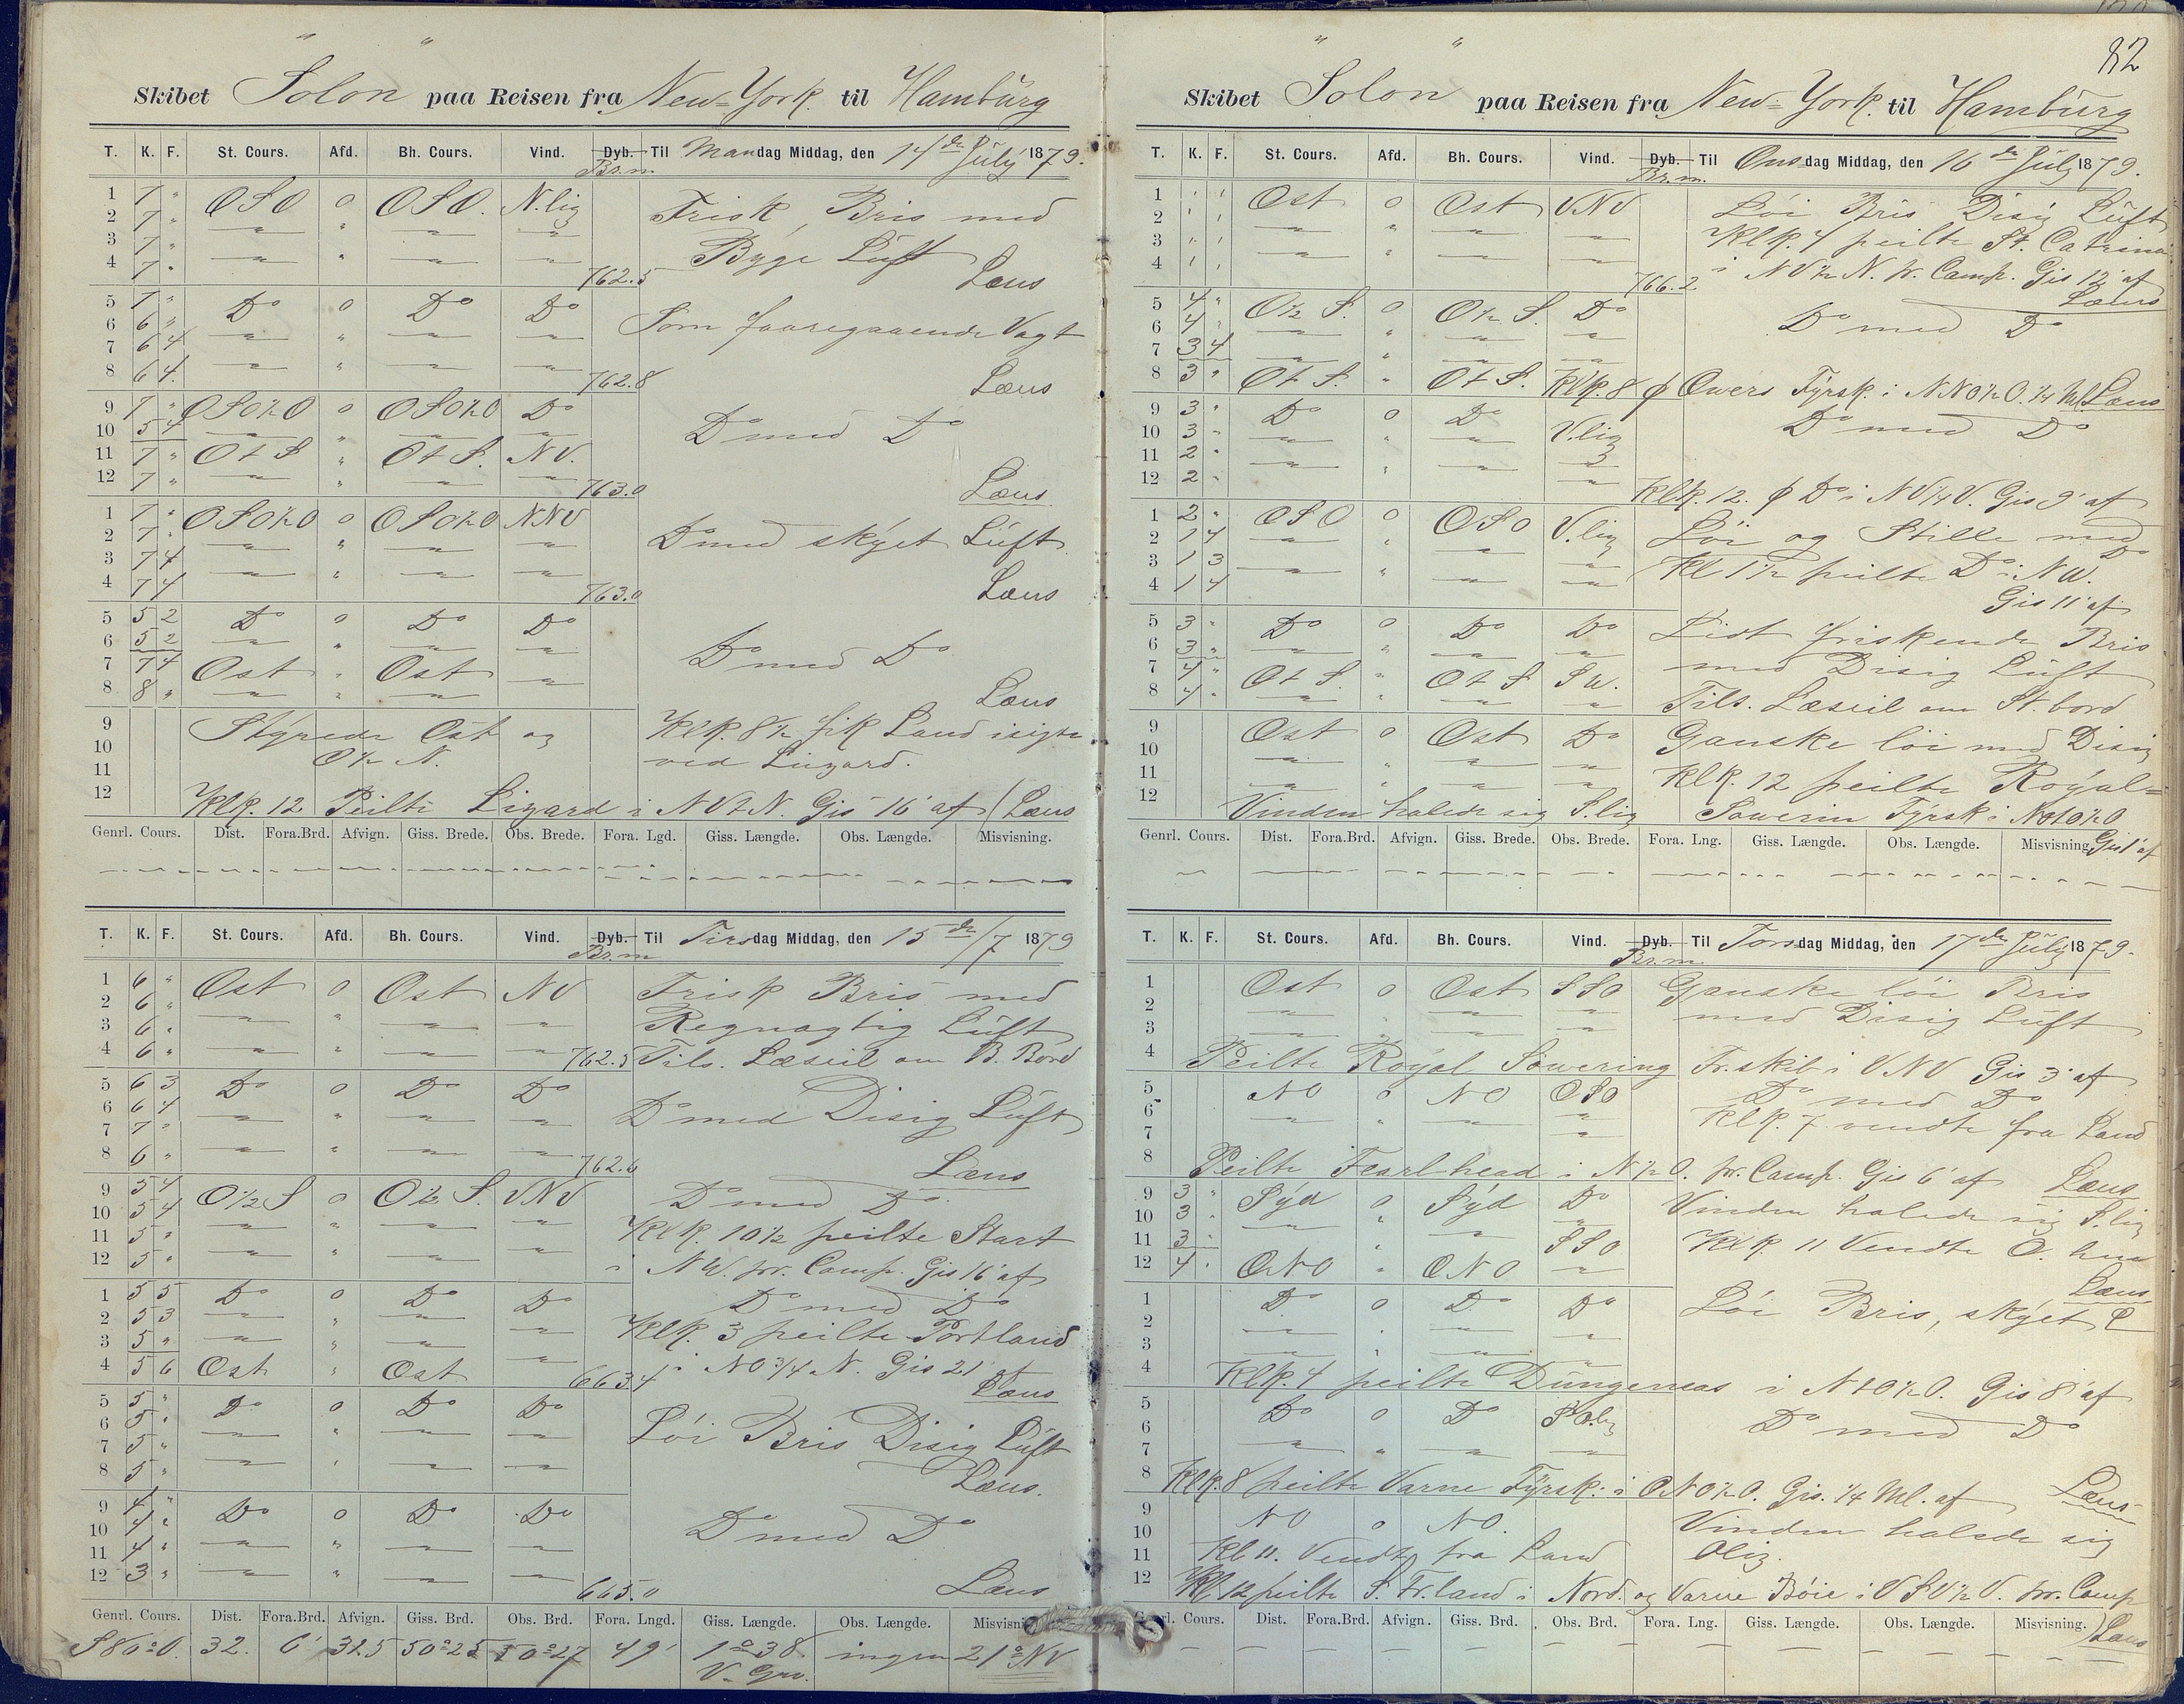 Skibet Solon paa Reisen fra New-York. til Hamburg
T. K. F. St. Cours. Afd. Bh. Cours. Vind. Dyb. Til Mandag Middag, den 14de July 1879.
Br.m.
1 7 " OSO 0 OSO. N.lig Frisk Bris med
2 7 " " " " "
3 7 " " " " " Byge Luft
4 7 " " " " " 762.5 Læns
5 7 " Do 0 Do Do
6 6 " " " " " Som foaregaaende Vagt
7 6 4 " " " "
8 6 4. " " " " 762.8 Læns
9 7 " OSO½O 0 OSO½O Do
10 5 4 " " " " Do med Do
11 7 " OtS " OtS. NV.
12 7 " " " " " 763.0 Læns
1 7 " OSO½O 0 OSO½O NNV
2 7 " " " " " Do med skyet Luft
3 7 4 " " " "
4 7 4 " " " " 763.0 Læns
5 5 2 Do 0 Do Do
6 5 2 " " " " Do med Do
7 7 4 Ost " Ost "
8 8 " " " " Læns
9 Styrede Ost og Klk. 8½ fik Land isigte
10 O½N. ved Lizard.
11
12 Klk. 12 Peilte Lizard i NVtN. Gis 16' af Læns
Genrl. Cours. Dist. Fora.Brd. Afvign. Giss. Brede. Obs. Brede. Fora. Lgd. Giss. Længde. Obs. Længde. Misvisning.
T. K. F. St. Cours. Afd. Bh. Cours. Vind. Dyb. Til Tirsdag Middag, den 15de/7 1879
Br.m
1 6 " Ost 0 Ost NV Frisk Bris med
2 6 " " " " "
3 6 " " " " " Regnagtig Luft
4 6 " " " " " 762.5 Tils. Læseil om B. Bord
5 6 3 Do 0 Do Do
6 6 4 " " " " Do med Disig Luft
7 7 " " " " "
8 6 " " " " " 762.6 Læns
9 5 4 O½S 0 O½S. VNV Do med Do
10 5 4 " " " " Klk. 10½ peilte Start
11 5 " " " " "
12 5 " " " " " i NW. pr. Comp. Gis 16' af
1 5 5 Do 0 Do Do Do med Do
2 5 3 " " " " Klk. 3 peilte Portland
3 5 " " " " "
4 5 6 Ost " Ost " 663.4 i NO¾N. Gis 21' af
Læns
5 5 " Do 0 Do Do
6 5 " " " " " Löi Bris Disig Luft
7 5 " " " " "
8 5 " " " " " Læns.
9 4 " Do 0 Do Do
10 4 " " " " " Do med Do
11 4 " " " " "
12 3 " " " " " 665.0 Læns
Genrl. Cours. Dist. Fora.Brd. Afvign. Giss. Brd. Obs. Brd. Fora. Lngd. Giss. Længde. Obs. Længde. Misvisni
S80°O. 32. 6' 31.5 50°25 50°27 49' 1°38 ingen 21° NV
V. Grv.
82
Skibet Solon paa Reisen fra New-York. til Hamburg
T. K. F. St. Cours. Afd. Bh. Cours. Vind. Dyb. Til Onsdag Middag, den 16de July 1879.
Br.m.
1 " " Ost 0 Ost VNV Löi Bris Disig Luft
2 " " " " " " Klk. 4 peilte St. Catrina
3 " " " " " "
4 " " " " " " 766.2 i NV½N. pr. Comp. Gis 12' af
Læns
5 4 " O½S. 0 O½S. Do
6 4 " " " " " Do med Do
7 3 4 " " " "
8 3 " OtS. " OtS. Klk. 8 ϕ Owers Fyrsk. i NNO½O. ¼ Ml. Læns
9 3 " Do 0 Do Do med Do
10 3 " " " " V.lig
11 2 " " " " "
12 2 " " Klk. 12. ϕ Do i NV¼V. Gis 9' af
1 2 " OSO 0 OSO V.lig Löi og Stille med
2 1 4 " " " " Do
3 1 3 " " " " Kl 1½ peilte Do i NW.
4 1 4 " " " Gis 11' af
5 3 " Do 0 Do Do Lidt friskende Bris
6 3 " " " " " med Disig Luft
7 4 " OtS. " OtS SW.
8 4 " " " " " Tils. Læseil om St. bord
9 Ost 0 Ost Do Ganske löi med Disig
10 " " " "
11 " " " " Klk. 12 peilte Royal-
12 Vinden halede sig S.lig Sowerin Fyrsk i NOtO½O
Genrl. Cours. Dist. Fora.Brd. Afvign. Giss. Brede. Obs. Brede. Fora. Lng. Giss. Længde. Obs. Længde. Misvisning. Gis 1' af
T. K. F. St. Cours. Afd. Bh. Cours. Vind. Dyb. Til Torsdag Middag, den 17de July 1879.
Br.m.
1 Ost 0 Ost SSO Ganske löi Bris
2 " " " " med Disig Luft
3 " " " "
4 Peilte Royal Sowering Fr.skib i VNV Gis 3' af
5 NO 0 NO OSO Do med Do
6 " " " " Klk. 7 vendte fra Land
7 "
8 Peilte Fearlhead i N½O. pr. Comp. Gis 6' af Læns
9 3 " Syd 0 Syd Do Vinden halede sig S.lig
10 3 " " " " "
11 3 " " " SSO Klk 11 Vendte O. hen
12 4 " ONO " ONO " Læns
1 Do 0 Do Do Löi Bris, skyet L
2 " " " "
3 " " " "
4 Klk. 4 peilte Dungeness i NtO½O. Gis 8' af
5 Do 0 Do SO.lig
6 " " " " Do med Do
7
8 Klk. 8 peilte Varne Fyrsk: i ONO½O. Gis. ¼ Ml. af Læns
9 NO 0 NO. Vinden halede sig
10 Olig.
11 Kl 11. Vendte fra Land
12 Kl. 12 peilte S. Fr.land i Nord. og Varne Böie i VSV½V. pr. Comp
Genrl. Cours. Dist. Fora.Brd. Afvign. Giss. Brd. Obs. Brd. Fora. Lng. Giss. Længde. Obs. Længde. Misvisning. Læns